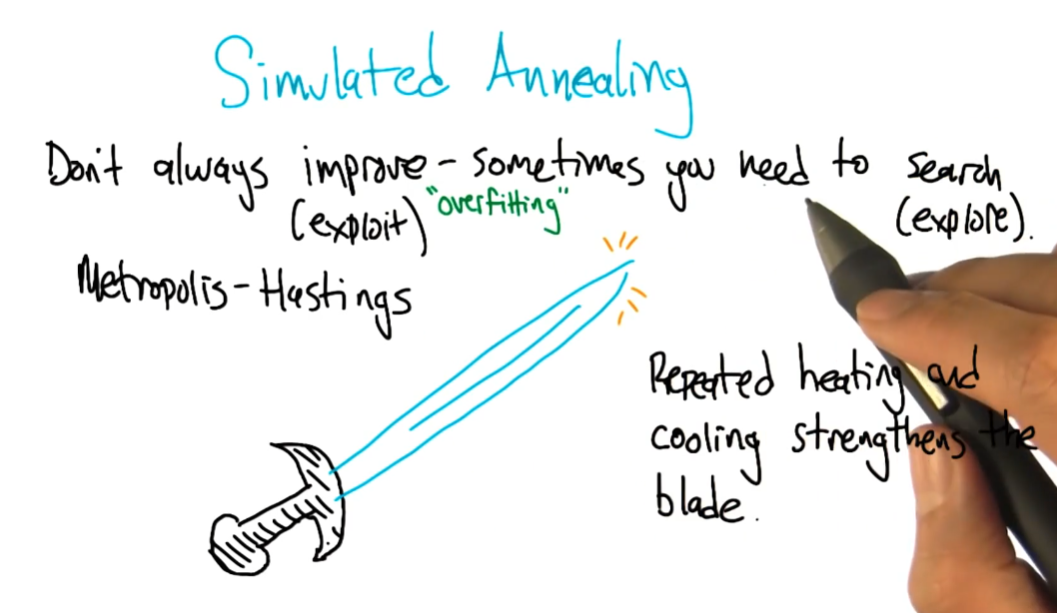 Simulated Annealing
Don't always improve - sometimes you need to search
(exploit) "overfitting" (explore).
Metropolis-Hastings
Repeated heating and
cooling strengthens the
blade.